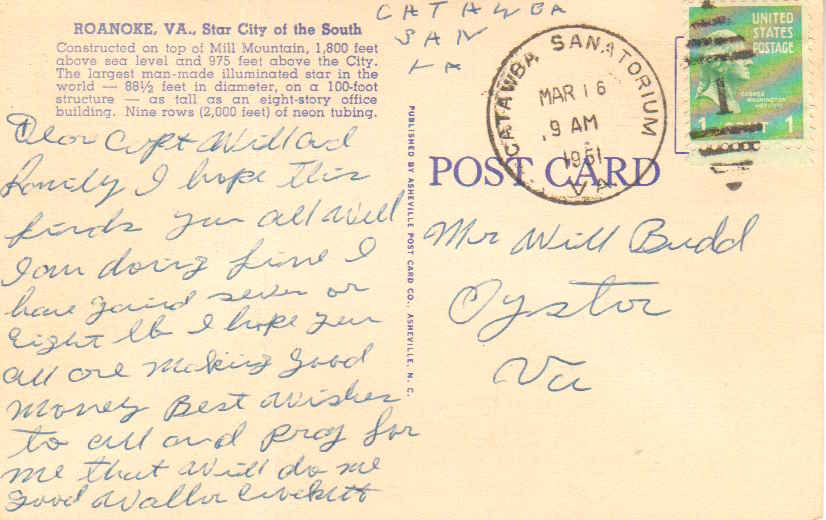 ROANOKE, VA., Star City of the South
Constructed on top of Mill Mountain, 1,800 feet
above sea level and 975 feet above the City.
The largest man-made illuminated star in the
world — 88½ feet in diameter, on a 100-foot
structure — as tall as an eight-story office
building. Nine rows (2,000 feet) of neon tubing.
CATAWBA
SAN
VA
CATAWBA SANATORIUM
MAR 16
9 AM
1961
VA
UNITED
STATES
POSTAGE
GEORGE
WASHINGTON
1 CENT 1
PUBLISHED BY ASHEVILLE POST CARD CO., ASHEVILLE, N. C.
POST CARD
Dear Capt Willard
Family I hope this
finds you all Well
I am doing fine I
have gaind seven or
Eight lb I hope you
all are making good
money Best Wishes
to all and Pray for
me that Will do me
Good Crockett
Mr Will Budd
Oyster
Va